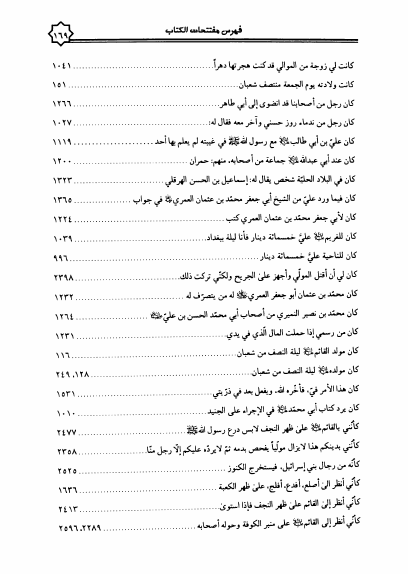 فهرس مفتتحات الكتاب
١٦٩
كانت لي زوجة من الموالي قد كنت هجرتها دهراً ........ ١٠٤١
كانت ولادته يوم الجمعة منتصف شعبان ........ ١٥١
كان رجل من أصحابنا قد انضوى إلى أبي طاهر ........ ١٢٦٦
كان رجل من ندماء روز حسني وآخر معه فقال له: ........ ١٠٢٧
كان عليّ بن أبي طالب مع رسول الله ﷺ في غيبته لم يعلم بها أحد ........ ١١١٩
كان عند أبي عبدالله جماعة من أصحابه، منهم: حمران ........ ١٢٠٠
كان في البلاد الحلّيّة شخص يقال له: إسماعيل بن الحسن الهرقلي ........ ١٣٢٣
كان فيما ورد عليّ من الشيخ أبي جعفر محمّد بن عثمان العمري في جواب ........ ١٣٦٥
كان لأبي جعفر محمّد بن عثمان العمري كتب ........ ١٢٢٤
كان للغريم عليّ خمسمائة دينار فأنا ليلة ببغداد ........ ١٠٣٩
كان للناحية عليّ خمسمائة دينار ........ ٩٩٦
كان لي أن أقتل المولّي وأجهز على الجريح ولكنّي تركت ذلك ........ ٢٣٩٨
كان محمّد بن عثمان أبو جعفر العمري له من يتصرّف له ........ ١٢٣٢
كان محمّد بن نصير النميري من أصحاب أبي محمّد الحسن بن عليّ ........ ١٢٦٤
كان من رسمي إذا حملت المال الّذي في يدي ........ ١٢٣١
كان مولد القائم ليلة النصف من شعبان ........ ١١٦
كان مولده ليلة النصف من شعبان ........ ١٢٨، ٢٤٩
كان هذا الأمر فيّ، فأخّره الله، ويفعل بعد في ذرّيتي ........ ١٥٣١
كان يرد كتاب أبي محمّد في الإجراء على الجنيد ........ ١٠١٠
كأنّني بالقائم على ظهر النجف لابس درع رسول الله ﷺ ........ ٢٤٧٧
كأنّني بدينكم هذا لايزال مولّياً يفحص بدمه ثمّ لايردّه عليكم إلّا رجل منّا ........ ٢٣٥٨
كأنّه من رجال بني إسرائيل، فيستخرج الكنوز ........ ٢٥٢٥
كأنّي أنظر الى أصلع، أفدع، أفلج، على ظهر الكعبة ........ ١٦٣٦
كأنّي أنظر إلى القائم على ظهر النجف فإذا استوى ........ ٢٤١٣
كأنّي أنظر إلى القائم على منبر الكوفة وحوله أصحابه ........ ٢٢٨٩، ٢٥٩٦